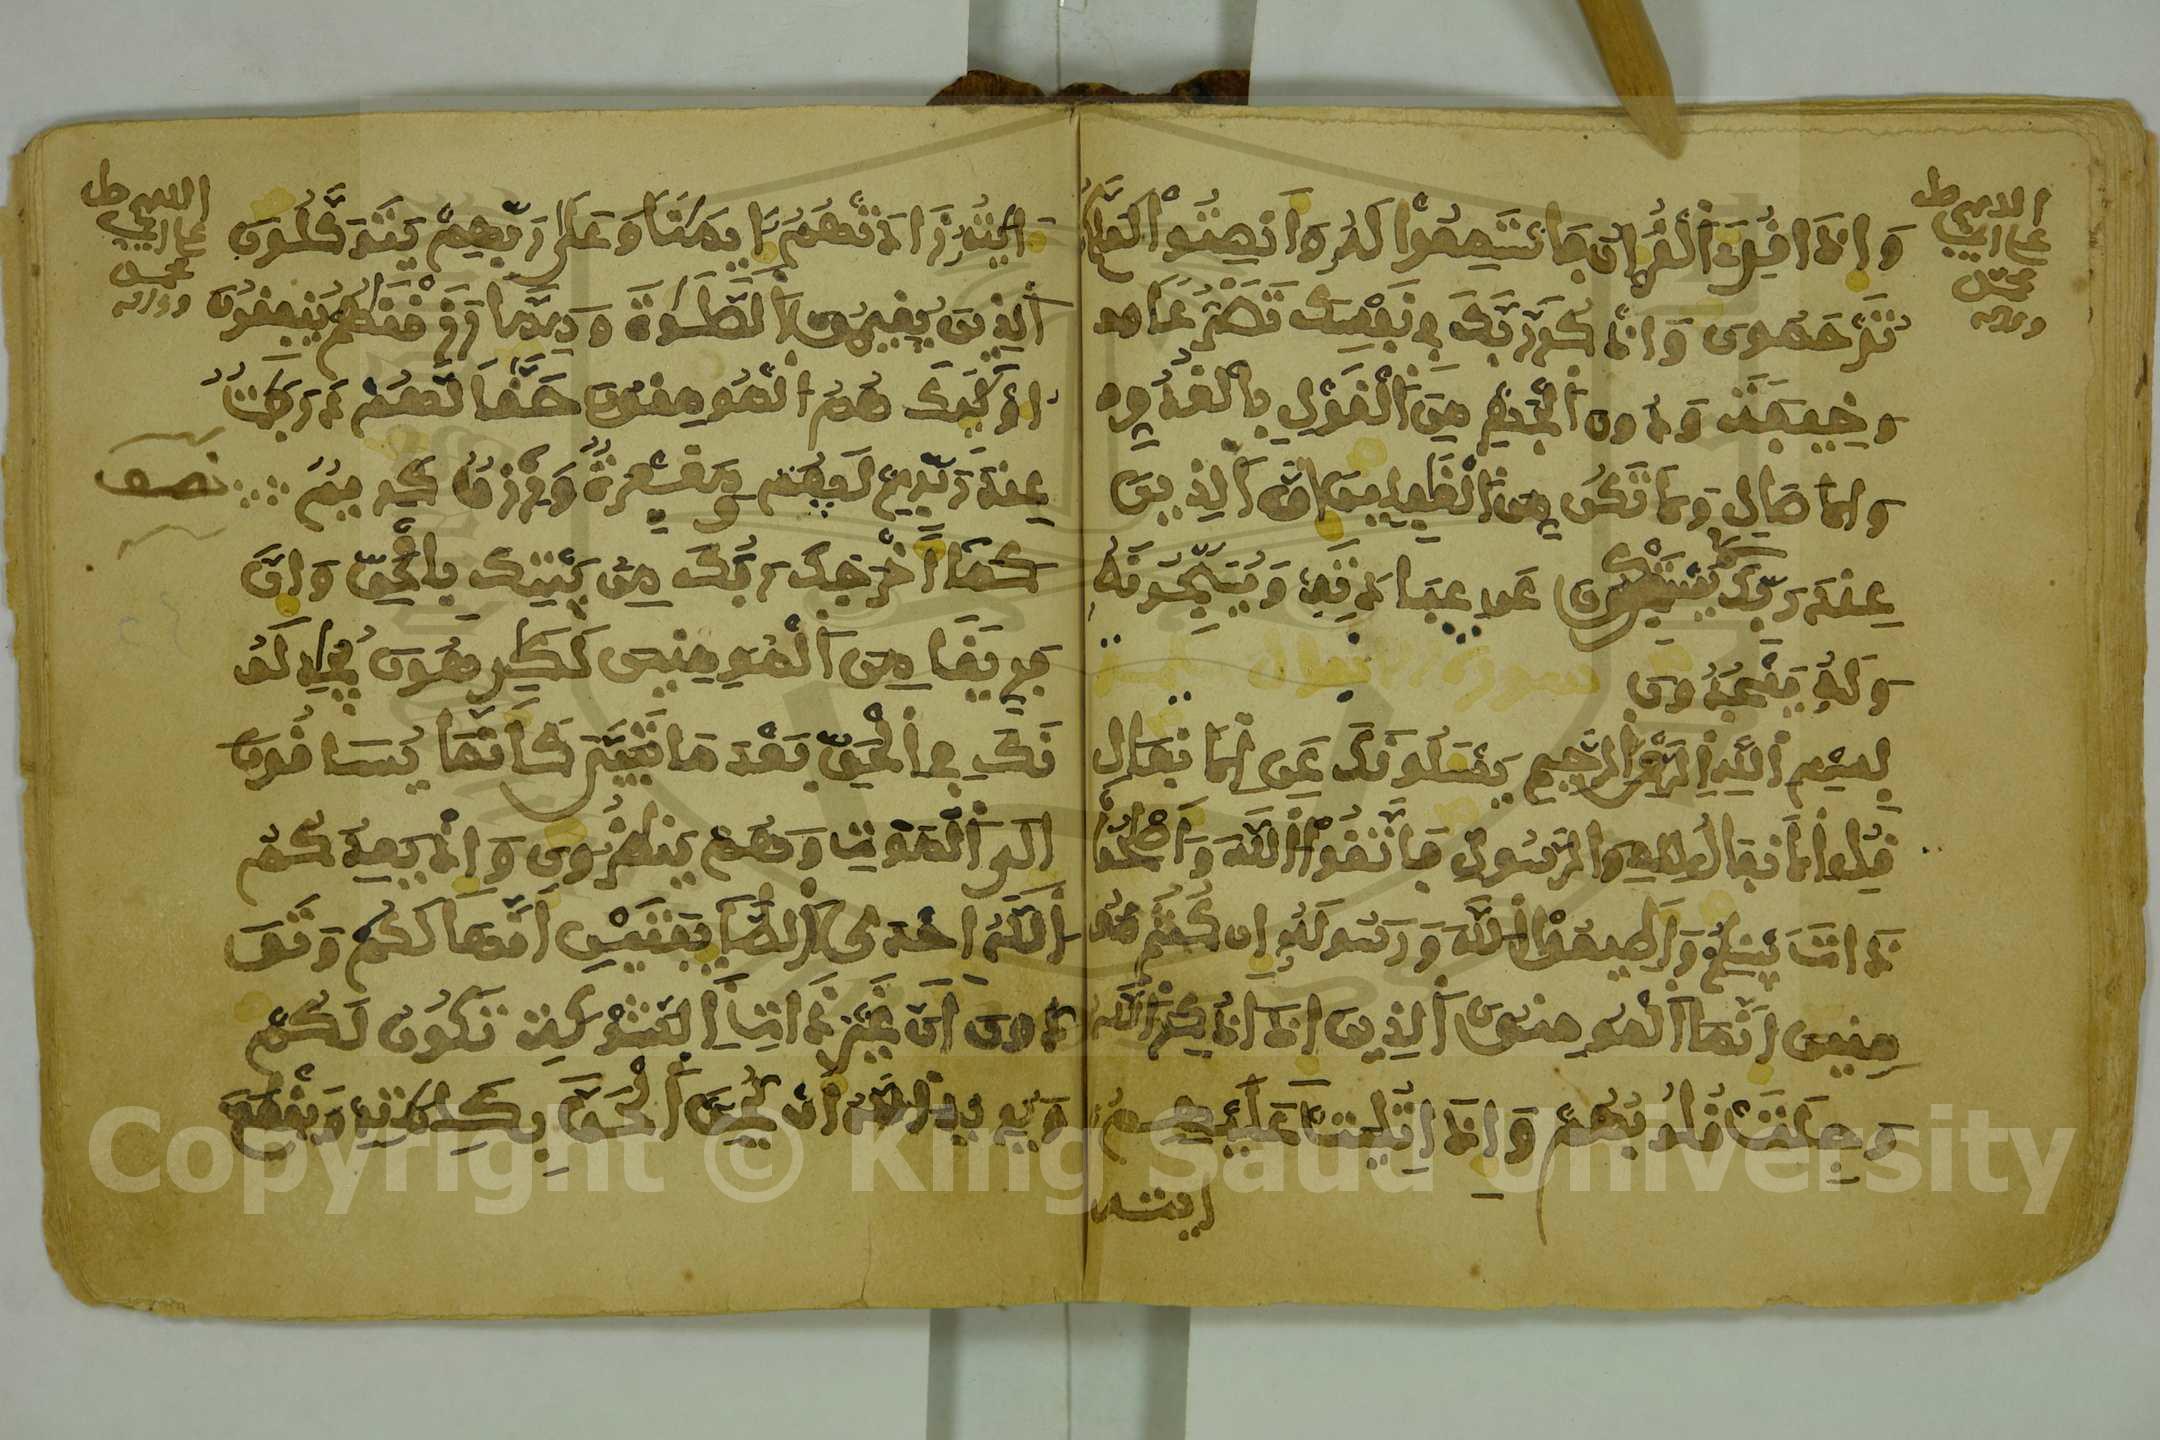 اللهم صل
على النبي
محمد
وءاله
وَإِذَا قُرِئَ ٱلْقُرْءَانُ فَاسْتَمِعُوا۟ لَهُۥ وَأَنصِتُوا۟ لَعَلَّكُمْ
تُرْحَمُونَ وَاذْكُر رَّبَّكَ فِي نَفْسِكَ تَضَرُّعًا وَ
وَخِيفَةً وَدُونَ ٱلْجَهْرِ مِنَ ٱلْقَوْلِ بِالْغُدُوِّ
وَالْءَاصَالِ وَلَا تَكُن مِّنَ ٱلْغَٰفِلِينَ إِنَّ ٱلَّذِينَ
عِندَ رَبِّكَ لَا يَسْتَكْبِرُونَ عَنْ عِبَادَتِهِ وَيُسَبِّحُونَهُ
وَلَهُۥ يَسْجُدُونَ سورة الأنفال
بِسْمِ ٱللَّهِ ٱلرَّحْمَٰنِ ٱلرَّحِيمِ يَسْـَٔلُونَكَ عَنِ ٱلْأَنفَالِ
قُلِ ٱلْأَنفَالُ لِلَّهِ وَالرَّسُولِ فَاتَّقُوا۟ ٱللَّهَ وَأَصْلِحُوا۟
ذَاتَ بَيْنِكُمْ وَأَطِيعُوا۟ ٱللَّهَ وَرَسُولَهُۥ إِن كُنتُم مُّو
مِنِينَ إِنَّمَا ٱلْمُومِنُونَ ٱلَّذِينَ إِذَا ذُكِرَ ٱللَّهُ
وَجِلَتْ قُلُوبُهُمْ وَإِذَا تُلِيَتْ عَلَيْهِمُ
ءايته
اللهم صل
على النبي
محمد
وءاله
ءَايَٰتُهُۥ زَادَتْهُمْ إِيمَٰنًا وَعَلَىٰ رَبِّهِمْ يَتَوَكَّلُونَ
ٱلَّذِينَ يُقِيمُونَ ٱلصَّلَوٰةَ وَمِمَّا رَزَقْنَٰهُمْ يُنفِقُونَ
أُو۟لَٰٓئِكَ هُمُ ٱلْمُومِنُونَ حَقًّا لَّهُمْ دَرَجَٰتٌ
عِندَ رَبِّهِمْ وَمَغْفِرَةٌ وَرِزْقٌ كَرِيمٌ
نصف
كَمَآ أَخْرَجَكَ رَبُّكَ مِنۢ بَيْتِكَ بِالْحَقِّ وَإِنَّ
فَرِيقًا مِّنَ ٱلْمُومِنِينَ لَكَٰرِهُونَ يُجَٰدِلُو
نَكَ فِي ٱلْحَقِّ بَعْدَ مَا تَبَيَّنَ كَأَنَّمَا يُسَاقُونَ
إِلَى ٱلْمَوْتِ وَهُمْ يَنظُرُونَ وَإِذْ يَعِدُكُمُ
ٱللَّهُ إِحْدَى ٱلطَّآئِفَتَيْنِ أَنَّهَا لَكُمْ وَتَوَ
دُّونَ أَنَّ غَيْرَ ذَاتِ ٱلشَّوْكَةِ تَكُونُ لَكُمْ
وَيُرِيدُ ٱللَّهُ أَن يُحِقَّ ٱلْحَقَّ بِكَلِمَٰتِهِ وَيَقْطَعَ
Copyright © King Saud University